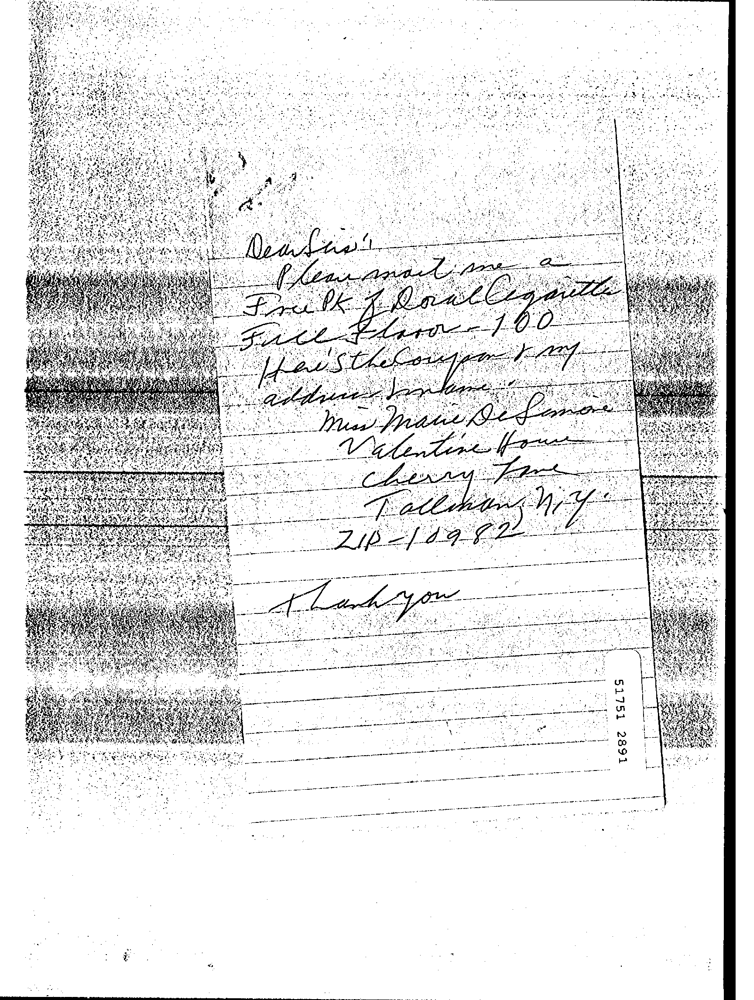 Dear Sirs:
Please mail me a
Free Pk of Doral Cigarette
Full Flavor - 100
Here's the Coupon & my
address & name:
Miss Marie DeSimone
Valentine House
Cherry Lane
Tallman, N.Y.
ZIP - 10982
Thank you
51751 2891